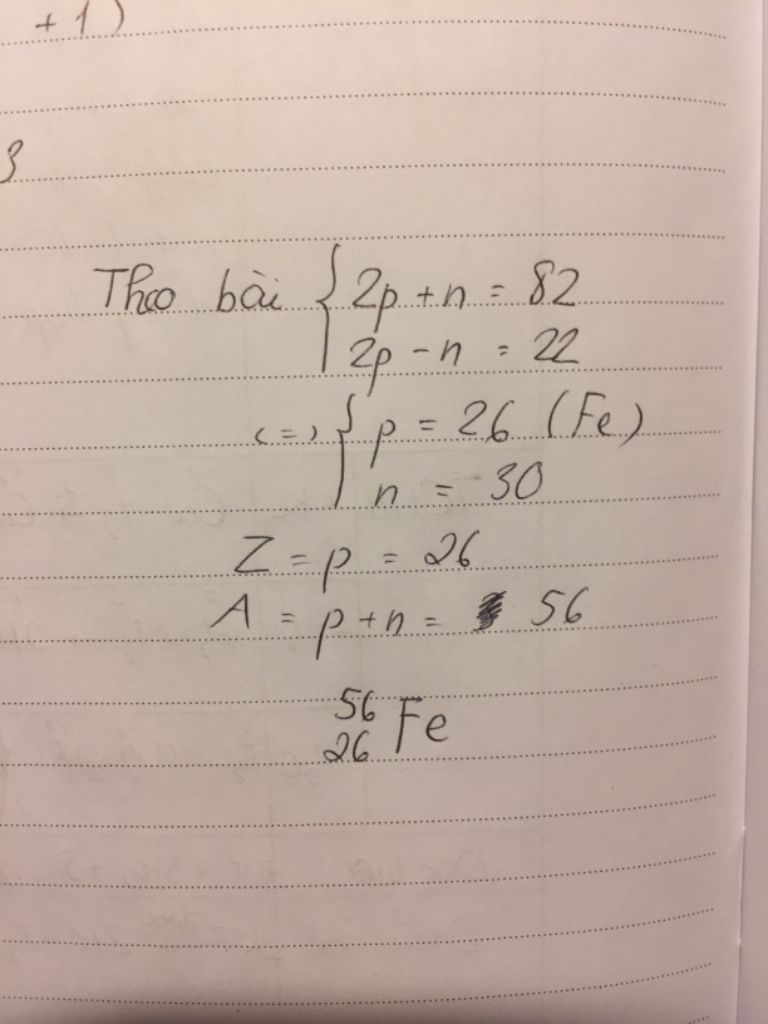 + 1)
3
Theo bài { 2p + n = 82
2p - n = 22
<=> { p = 26 (Fe)
n = 30
Z = p = 26
A = p + n = 56
56
26 Fe